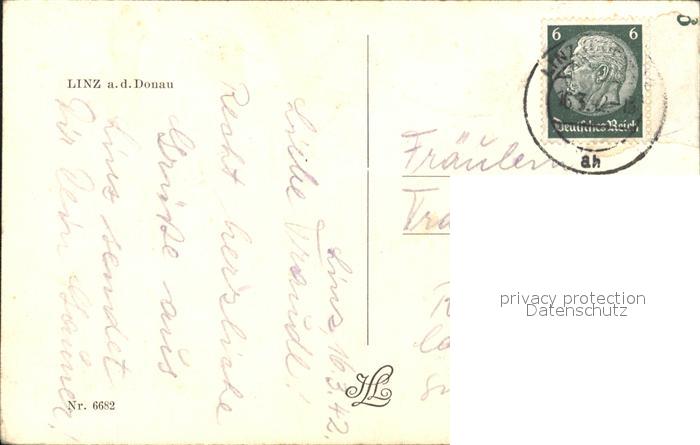 LINZ a.d. Donau
Linz, 16.3.42.
Liebe Traudl!
Recht herzliche
Grüße aus
Linz sendet
Dir Dein
Nr. 6682
6 6
Deutsches Reich
LINZ
16.3.
ah
6
Fräulein
Tra
privacy protection
Datenschutz